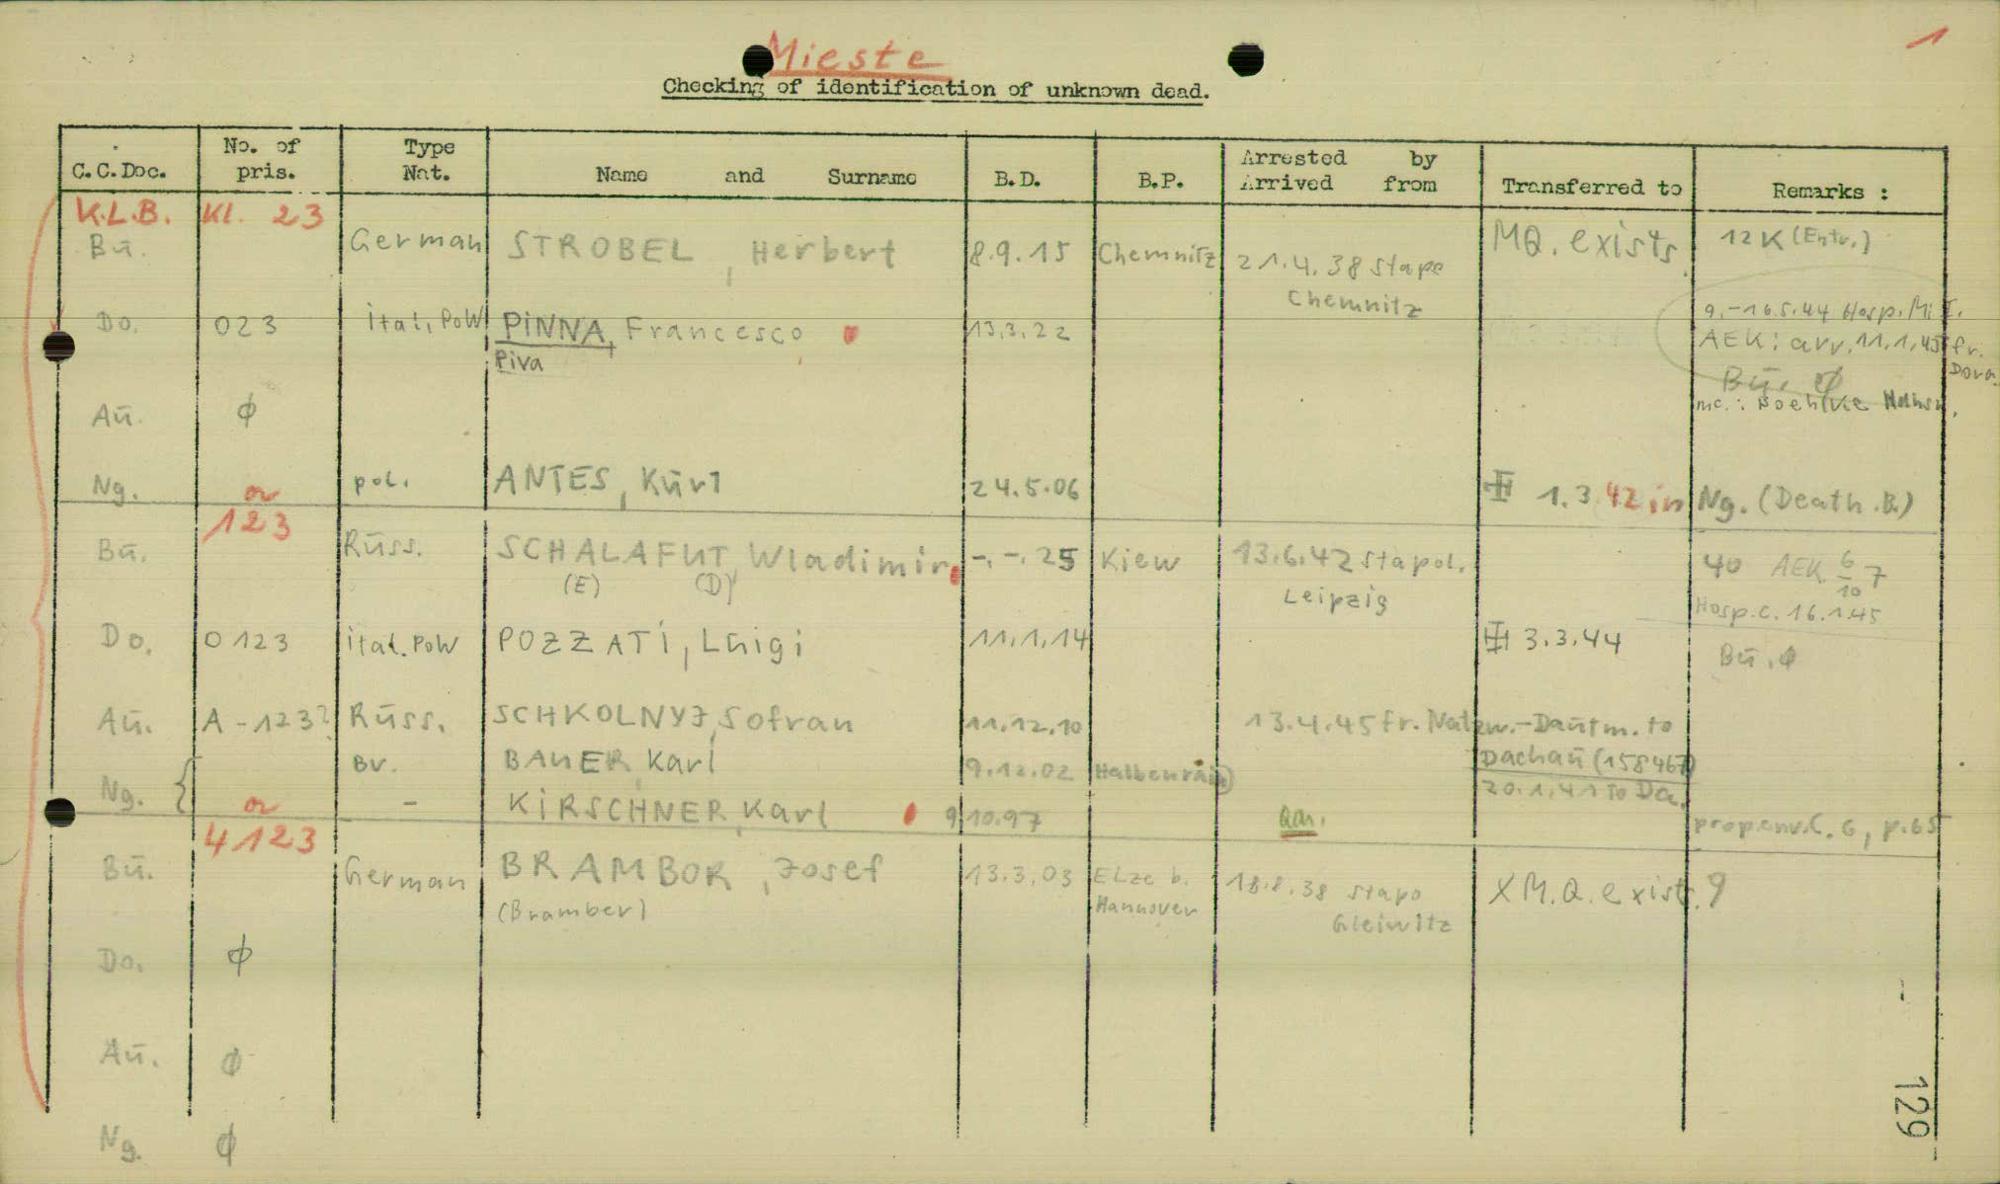 Mieste
1
Checking of identification of unknown dead.
C.C.Doc. No. of pris. Type Nat. Name and Surname B.D. B.P. Arrested by Arrived from Transferred to Remarks :
K.L.B. Kl. 23
Bū. German STROBEL, Herbert 8.9.15 Chemnitz 21.4.38 Stapo Chemnitz MQ. exists 12K (Entr.)
Do. 023 ital. PoW PINNA, Francesco 13.3.22 9.-16.5.44 Hosp.
Piva AEK: arr. 11.1.45 fr. Dora
Bū. ø
Aū. ø
Ng. pol. ANTES, Kūrl 24.5.06 1.3.42 in Ng. (Death.B.)
or
123
Bū. Rūss. SCHALAFUT, Wladimir -.-.25 Kiew 13.6.42 Stapol. Leipzig 40 AEK 6/10 7
(E) (D) Hosp.c. 16.1.45
Do. 0123 ital. PoW POZZATI, Lūigi 11.1.14 3.3.44 Bū. ø
Aū. A-123? Rūss. SCHKOLNYJ, Sofran 11.12.10 13.4.45 fr. Natzw.-Daūtm. to
BV. BAUER, Karl 9.12.02 Halbenrain Dachaū (158467)
20.1.41 to Da.
Ng. - KIRSCHNER, Karl 9.10.97
or
4123 prop.env.C. 6, p.65
Bū. German BRAMBOR, Josef 13.3.03 Elze b. Hannover 18.8.38 Stapo Gleiwitz X M.Q. exist. 9
(Bramber)
Do. ø
Aū. ø
Ng. ø
129